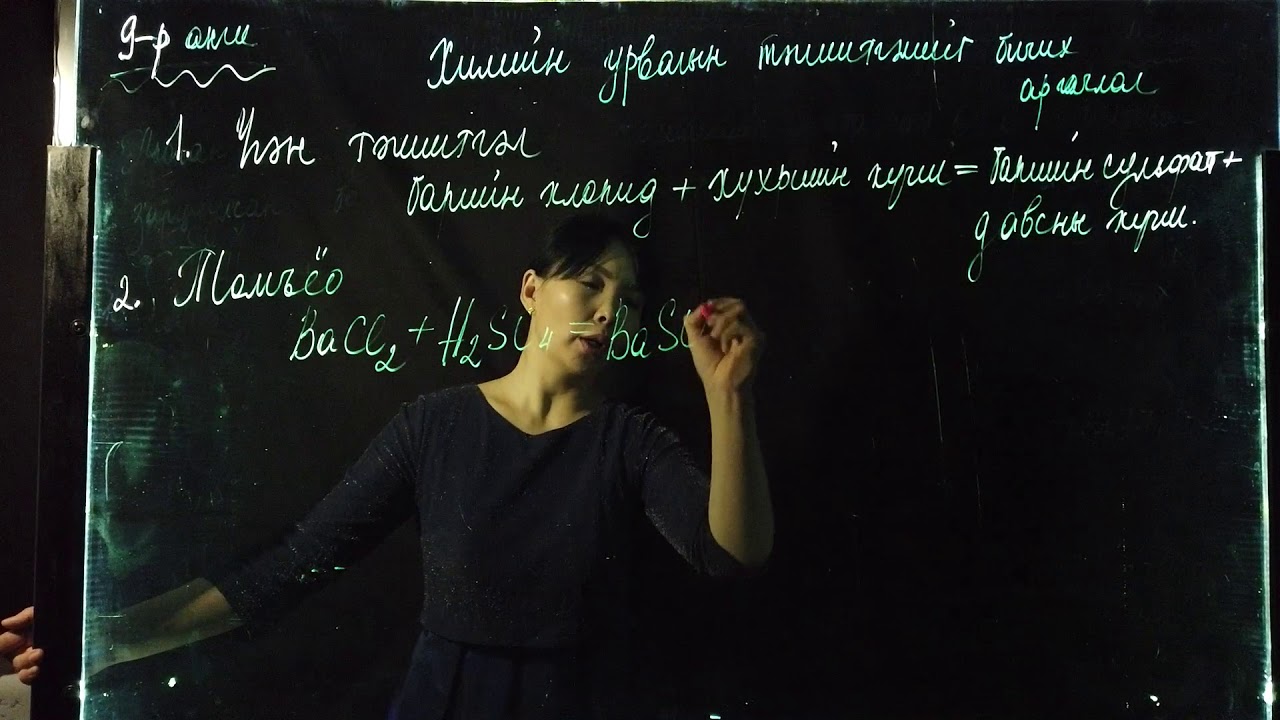 9-р анги
Химийн урвалын тэгшитгэлийг бичих
аргачлал
1. Үгэн тэгшитгэл
барийн хлорид + хүхрийн хүчил = барийн сульфат +
давсны хүчил.
2. Томъёо
BaCl₂ + H₂SO₄ = BaS